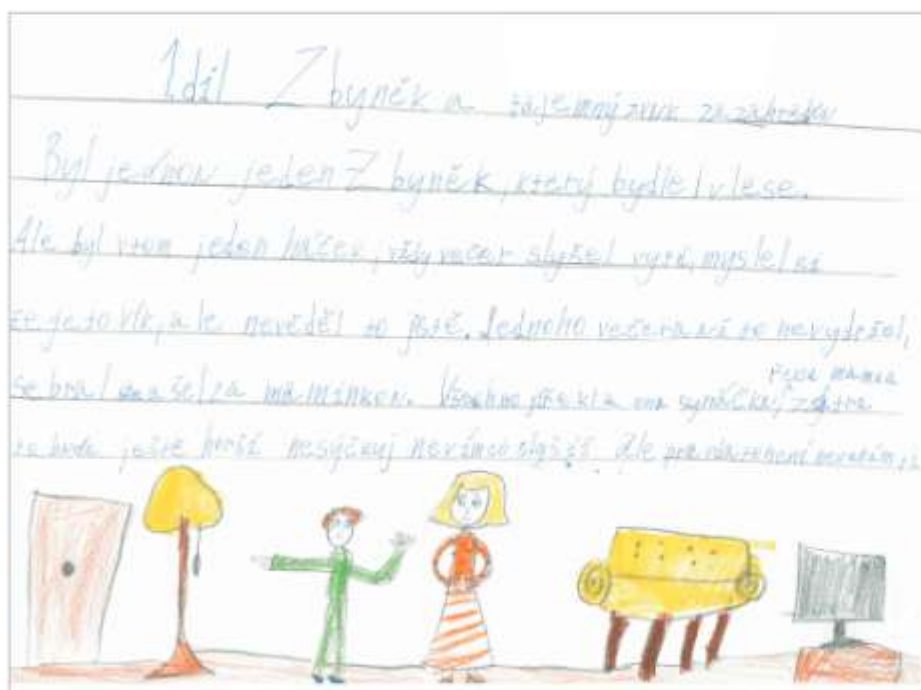 1 díl Zbyněk a tajemný zvuk za zahradou
Byl jednou jeden Zbyněk, který bydlel v lese.
Ale byl v tom jeden háček, vždy večer slyšel vytí, myslel si
že je to vlk, ale nevěděl to jistě. Jednoho večera to nevydržel,
sebral se a šel za maminkou. Všechno jí řekla ona synáčku, zítra
řekla mamka
to bude ještě horší nesýčkuj nevím co slyšíš. Ale pro